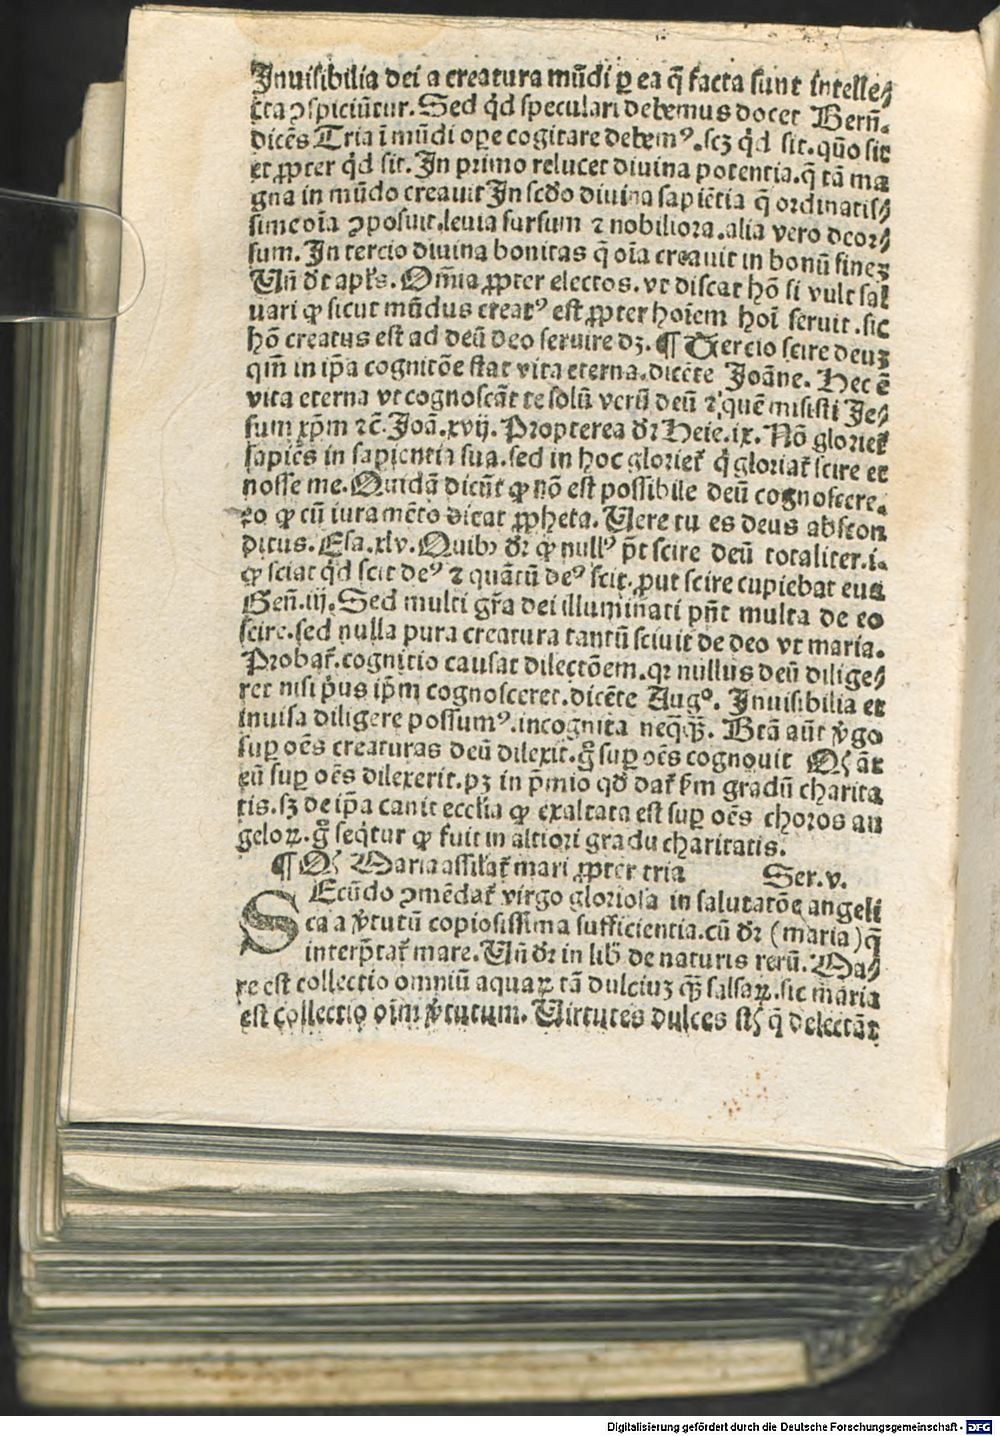 Inuisibilia dei a creatura mūdi ꝑ ea q̄ facta sunt intelle⸗
cta ꝯspiciūtur. Sed qͥd speculari debemus docet Berñ.
dicēs Tria ī mūdi oꝑe cogitare debemꝰ. scꝫ qͥd sit. quō sit
et ꝓpter qͥd sit. In primo relucet diuina potentia. q̄ tā ma
gna in mūdo creauit In scd̄o diuina sapiētia q̄ ordinatis⸗
sime oīa ꝯposuit. leuia sursum ⁊ nobiliora. alia vero deor⸗
sum. In tercio diuina bonitas q̄ oīa creauit in bonū fineꝫ
Un̄ dr̄ apl's. Om̄ia ꝓpter electos. vt discat hō si vult sal
uari ꝙ sicut mūdus creatꝰ est ꝓpter hoīem hoī seruit. sic
hō creatus est ad deū deo seruire dꝫ. ¶ Tercio scire deuꝫ
qm̄ in ip̄a cognitōe stat vita eterna. dicēte Joāne. Hec ē
vita eterna vt cognoscāt te solū verū deū ⁊ quē misisti Je⸗
sum xp̄m ⁊c̄. Joā. xvij. Propterea dr̄ Heie. ix. Nō glorieť
sapiēs in sapientia sua. sed in hoc glorieť qͥ gloriať scire et
nosse me. Quidā dicūt ꝙ nō est possibile deū cognoscere.
eo ꝙ cū iuramēto dicat ꝓpheta. Uere tu es deus abscon
ditus. Esa. xlv. Quibꝫ dr̄ ꝙ nullꝰ pt̄ scire deū totaliter. i.
ꝙ sciat qͥd scit deꝰ ⁊ quātū deꝰ scit. ꝓut scire cupiebat eua
Gen̄. iij. Sed multi gr̄a dei illuminati pn̄t multa de eo
scire. sed nulla pura creatura tantū sciuit de deo vt maria.
Probať. cognitio causat dilectōem. qꝛ nullus deū dilige⸗
ret nisi pͥus ip̄m cognosceret. dicēte Augꝰ. Inuisibilia et
inuisa diligere possumꝰ. incognita neq̄q̄ꝫ. Btā aūt v̓go
suꝑ oēs creaturas deū dilexit. g̊ suꝑ oēs cognouit Qꝫ āt
eū suꝑ oēs dilexerit. pꝫ in p̄mio qd̄ dať ẜm gradū charita
tis. sꝫ de ip̄a canit eccl̓ia ꝙ exaltata est suꝑ oēs choros an
geloꝝ. g̊ seqͥtur ꝙ fuit in altiori gradu charitatis.
¶ Qꝫ Maria assil'ať mari ꝓpter tria Ser. v.
SEcūdo ꝯmēdať virgo gloriosa in salutatōe angeli
ca a v̓tutū copiosissima sufficientia. cū dr̄ (maria) q̄
interp̄tať mare. Un̄ dr̄ in lib̓ de naturis rerū. Ma⸗
re est collectio omniū aquaꝝ tā dulciuꝫ q̄ꝫ salsaꝝ. sic maria
est collectio oīm v̓tutum. Uirtutes dulces st̄ q̄ delectāt
Digitalisierung gefördert durch die Deutsche Forschungsgemeinschaft - DFG